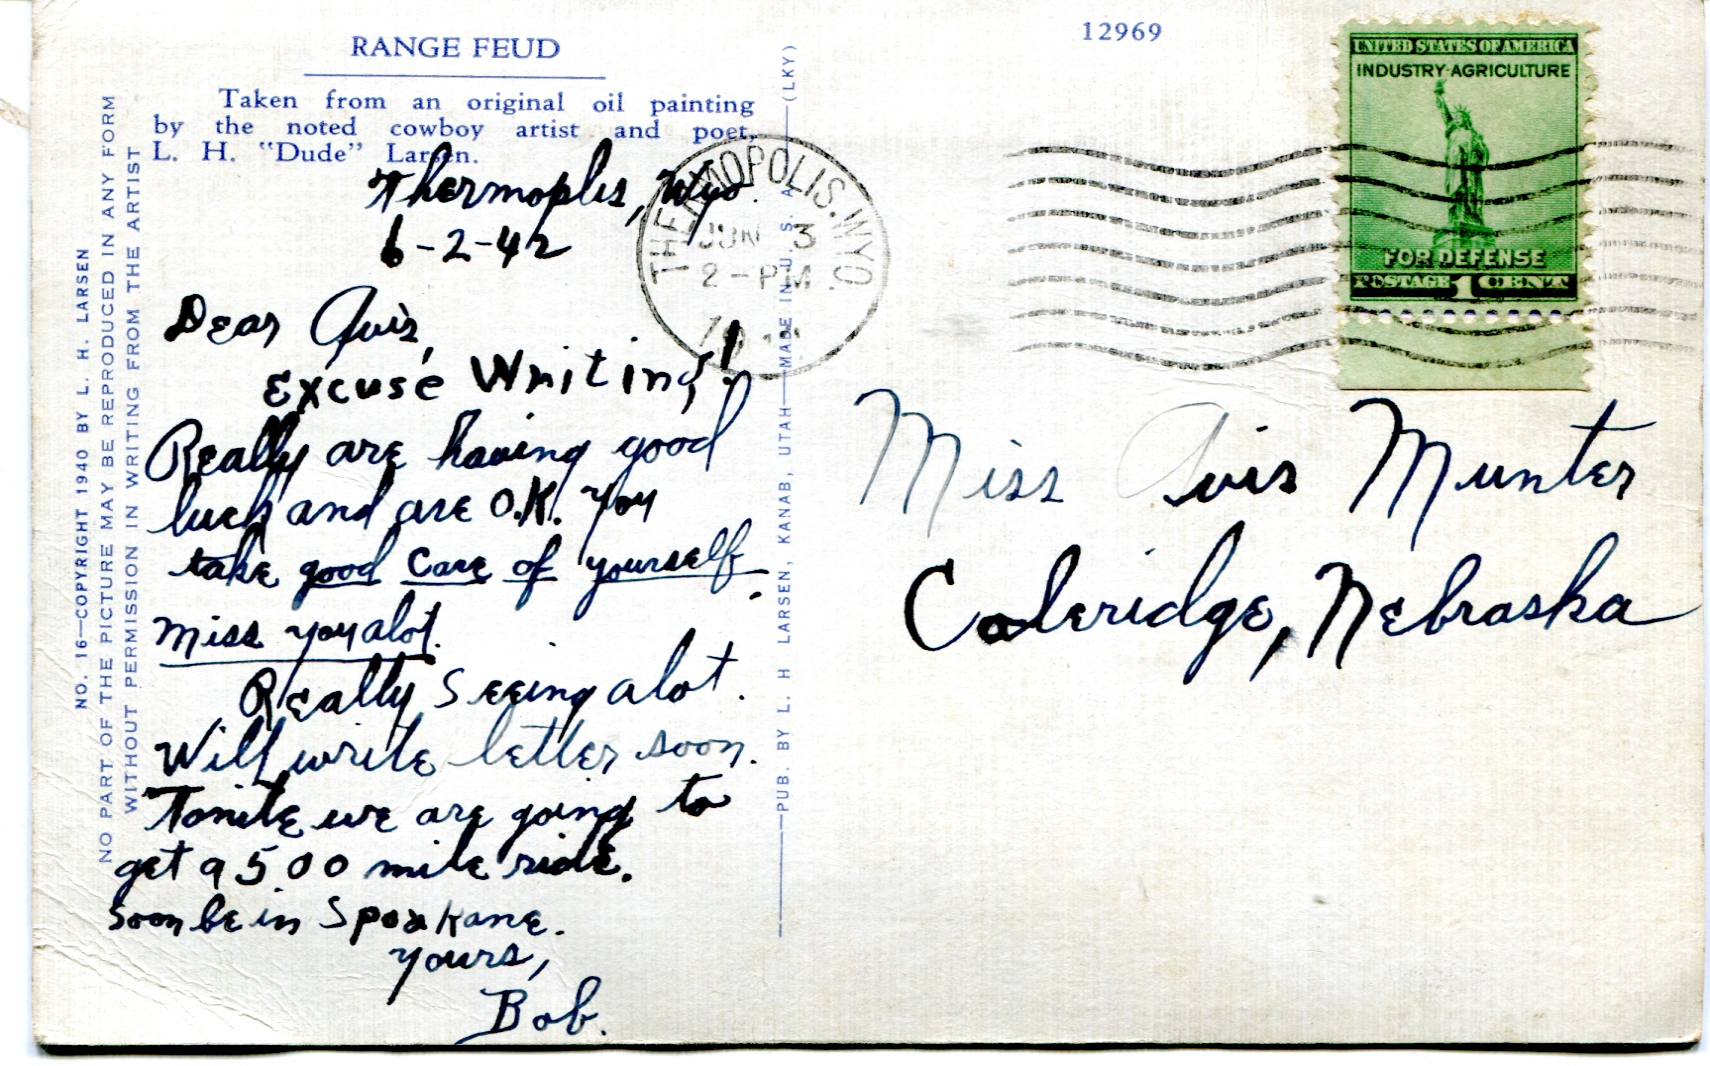 RANGE FEUD
Taken from an original oil painting
by the noted cowboy artist and poet,
L. H. "Dude" Larsen.
NO. 16—COPYRIGHT 1940 BY L. H. LARSEN
NO PART OF THE PICTURE MAY BE REPRODUCED IN ANY FORM
WITHOUT PERMISSION IN WRITING FROM THE ARTIST
Thermoplis, Wyo.
6-2-42
Dear Avis,
Excuse Writing!
Really are having good
luck and are O.K. You
take good care of yourself.
Miss you alot.
Really Seeing alot.
Will write letter soon.
Tonite we are going to
get a 500 mile ride.
Soon be in Spokane.
Yours,
Bob.
PUB. BY L. H LARSEN, KANAB, UTAH—MADE IN U. S. A.—(LKY)
12969
THERMOPOLIS. WYO.
JUN 3
2-PM
UNITED STATES OF AMERICA
INDUSTRY-AGRICULTURE
FOR DEFENSE
POSTAGE 1 CENT
Miss Avis Munter
Coleridge, Nebraska